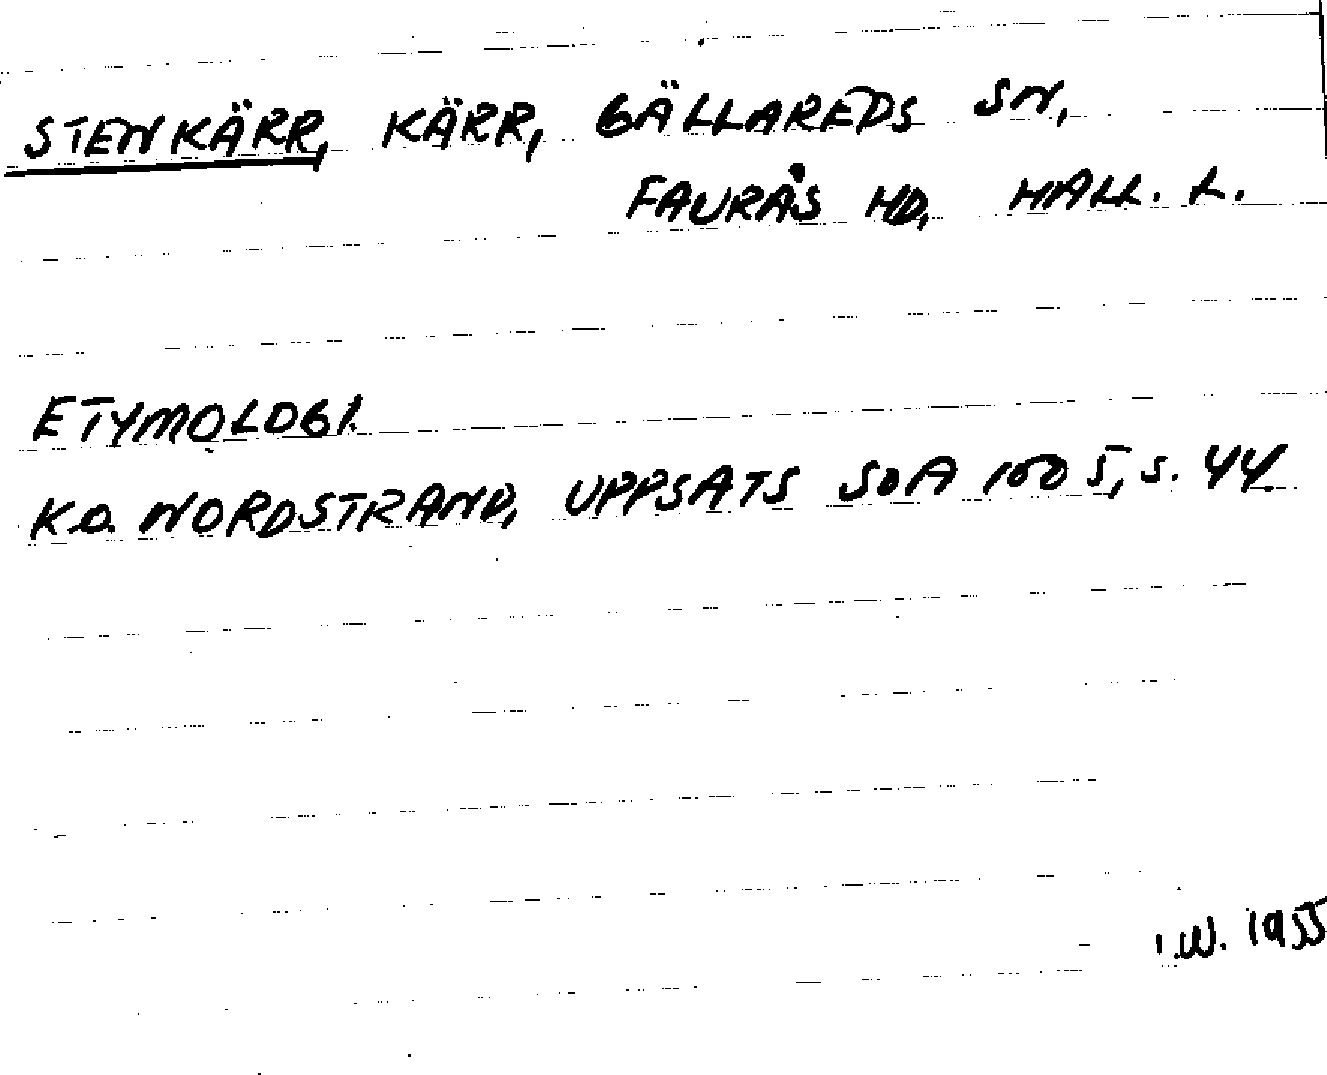 STENKÄRR, KÄRR, GÄLLAREDS SN,
FAURÅS HD, HALL. L.
ETYMOLOGI.
K.O. NORDSTRAND, UPPSATS SOA 100 5, S. 44
I.W. 1955